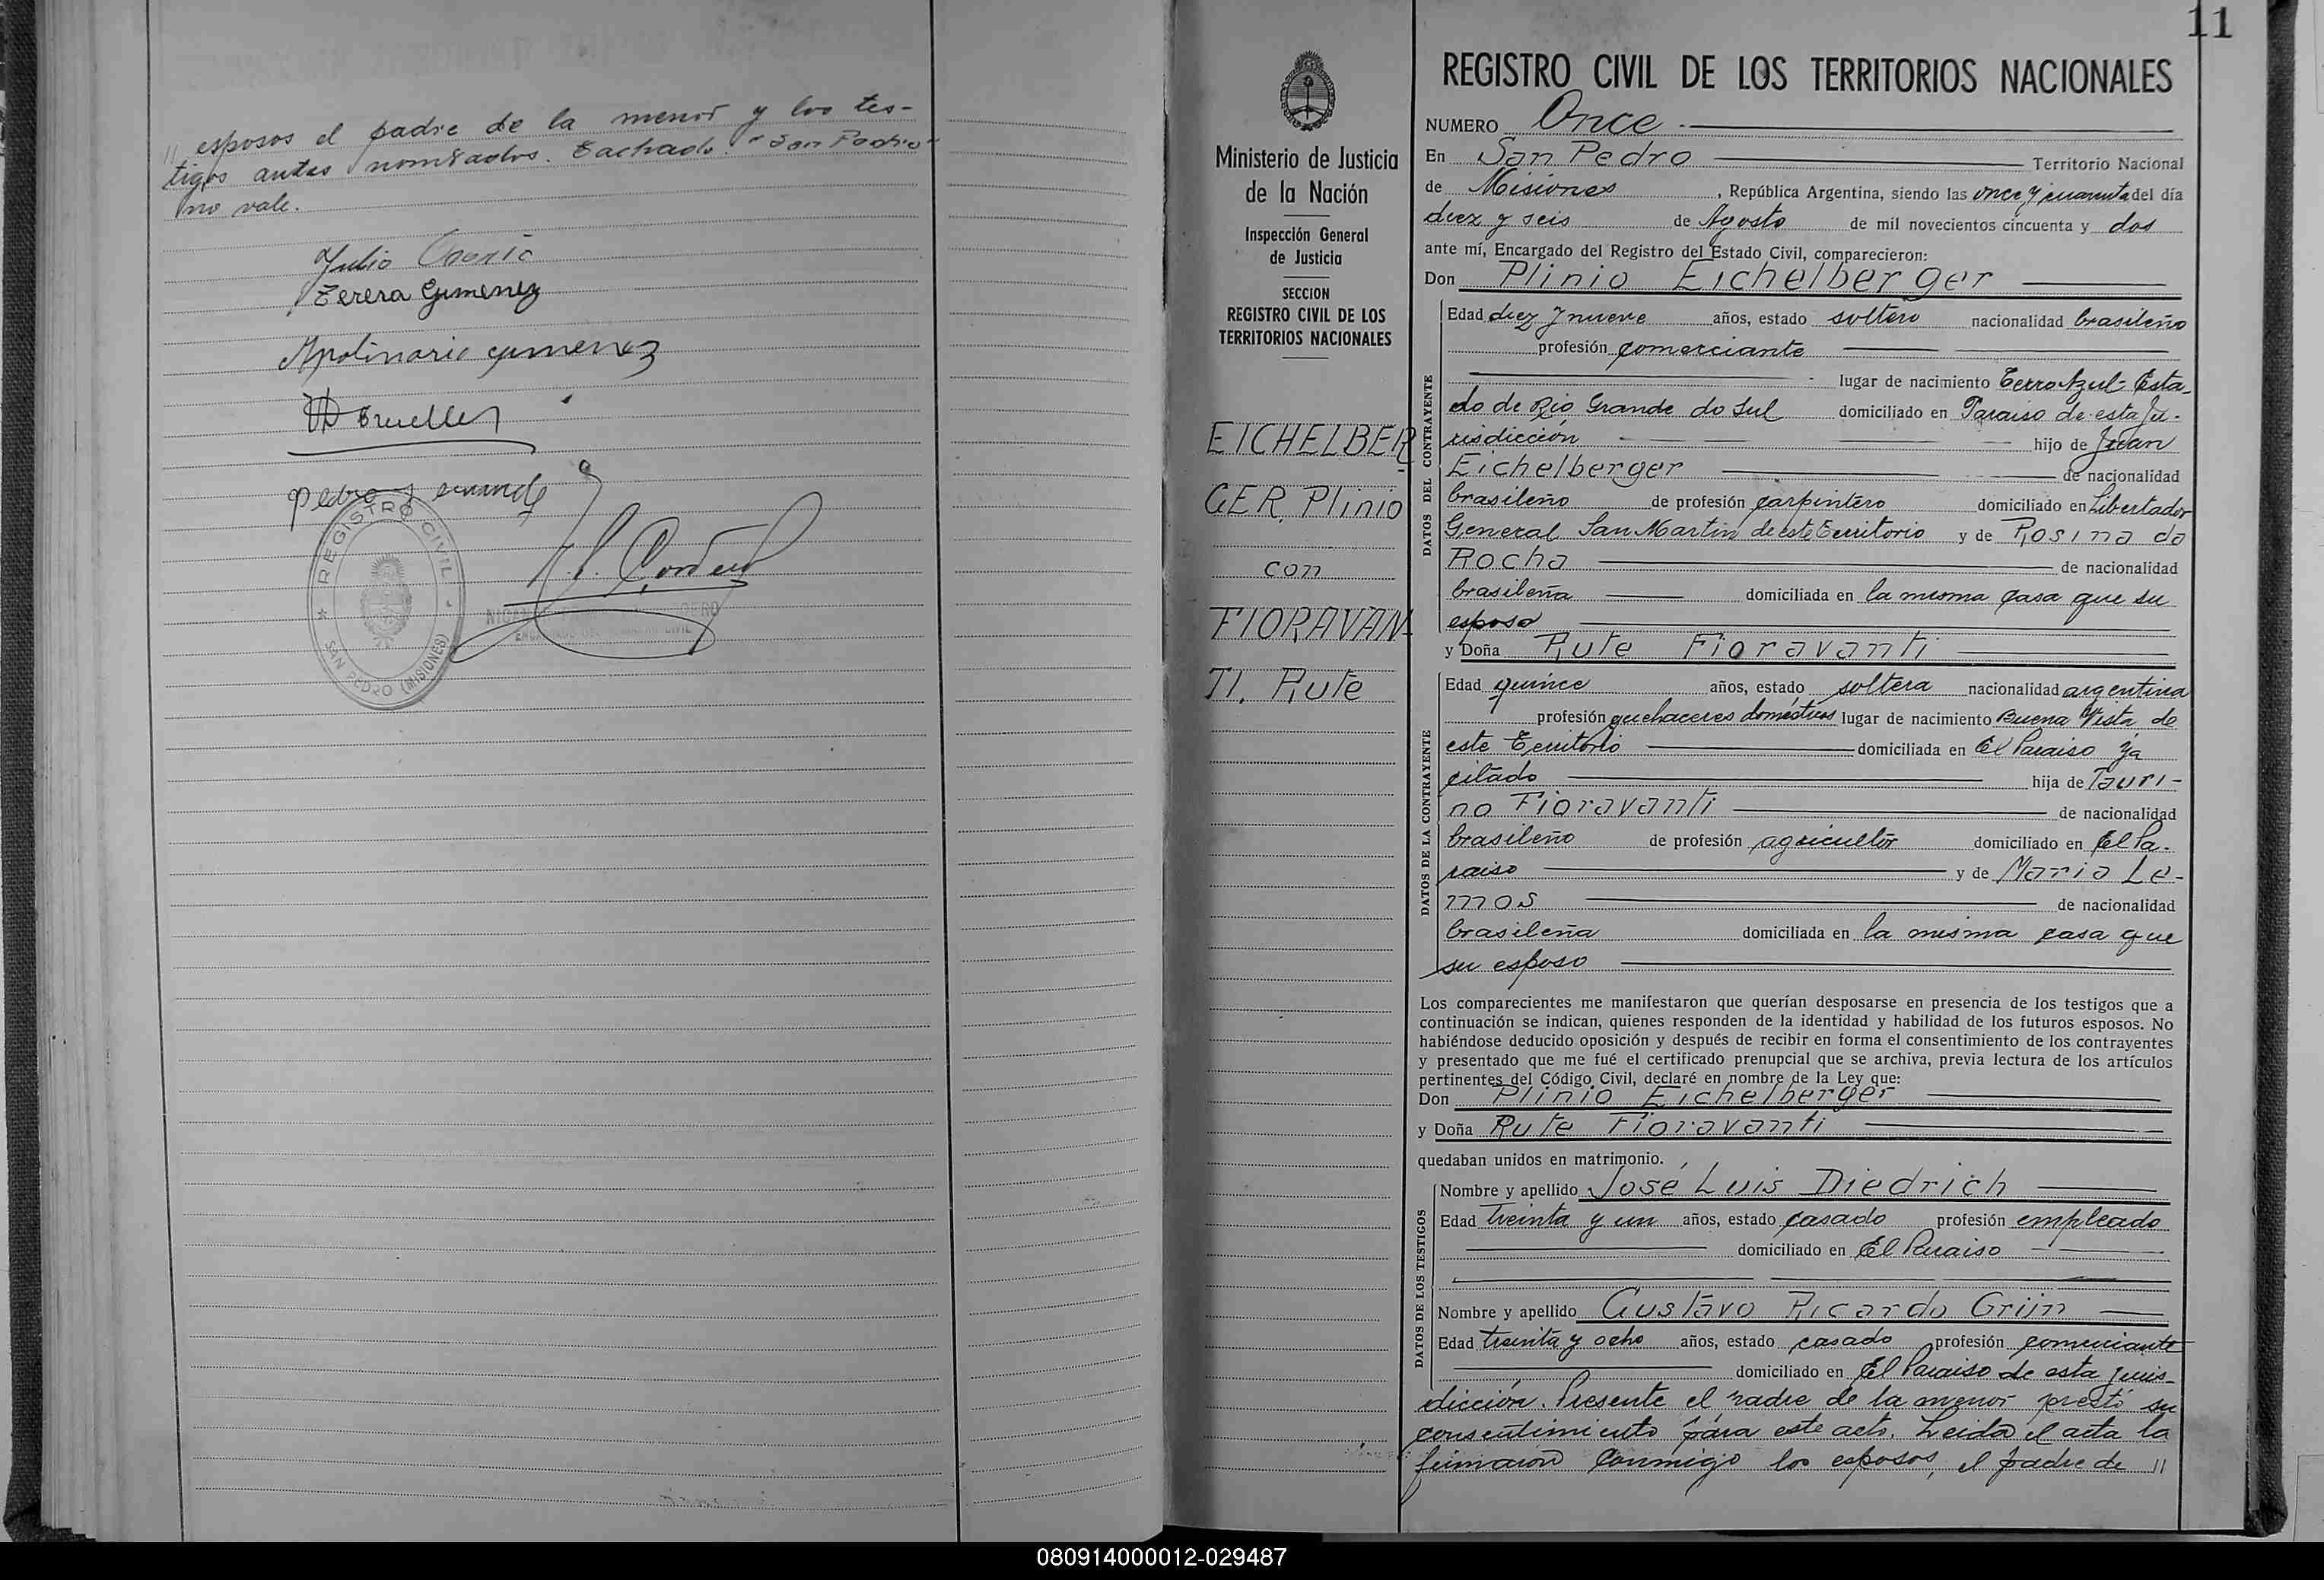 // esposos el padre de la menor y los tes-
tigos antes nombrados. Tachado: "San Pedro"
no vale.
Julio
Terera Gimenez
Apolinario gimenez
pedro
REGISTRO CIVIL
SAN PEDRO (MISIONES)
ENCARGADO DEL REGISTRO CIVIL
11
Ministerio de Justicia
de la Nación
Inspección General
de Justicia
SECCION
REGISTRO CIVIL DE LOS
TERRITORIOS NACIONALES
EICHELBER-
GER, Plinio
con
FIORAVAN-
TI, Rute
REGISTRO CIVIL DE LOS TERRITORIOS NACIONALES
NUMERO Once
En San Pedro Territorio Nacional
de Misiones, República Argentina, siendo las once y cuarenta del día
diez y seis de Agosto de mil novecientos cincuenta y dos
ante mí, Encargado del Registro del Estado Civil, comparecieron:
Don Plinio Eichelberger
DATOS DEL CONTRAYENTE
Edad diez y nueve años, estado soltero nacionalidad brasileño
profesión comerciante
lugar de nacimiento Cerro Azul- Esta-
do de Rio Grande do Sul domiciliado en Paraiso de esta Ju-
risdicción hijo de Juan
Eichelberger de nacionalidad
brasileño de profesión carpintero domiciliado en Libertador
General San Martin de este Territorio y de Rosina da
Rocha de nacionalidad
brasileña domiciliada en la misma casa que su
esposo
y Doña Rute Fioravanti
DATOS DE LA CONTRAYENTE
Edad quince años, estado soltera nacionalidad argentina
profesión quehaceres domésticos lugar de nacimiento Buena Vista de
este Territorio domiciliada en El Paraiso ya
citado hija de Tauri-
no Fioravanti de nacionalidad
brasileño de profesión agricultor domiciliado en El Pa-
raiso y de Maria Le-
mos de nacionalidad
brasileña domiciliada en la misma casa que
su esposo
Los comparecientes me manifestaron que querían desposarse en presencia de los testigos que a
continuación se indican, quienes responden de la identidad y habilidad de los futuros esposos. No
habiéndose deducido oposición y después de recibir en forma el consentimiento de los contrayentes
y presentado que me fué el certificado prenupcial que se archiva, previa lectura de los artículos
pertinentes del Código Civil, declaré en nombre de la Ley que:
Don Plinio Eichelberger
y Doña Rute Fioravanti
quedaban unidos en matrimonio.
DATOS DE LOS TESTIGOS
Nombre y apellido José Luis Diedrich
Edad treinta y un años, estado casado profesión empleado
domiciliado en El Paraiso
Nombre y apellido Gustavo Ricardo Grün
Edad treinta y ocho años, estado casado profesión comerciante
domiciliado en El Paraiso de esta juris-
dicción. Presente el padre de la menor prestó su
consentimiento para este acto. Leida el acta la
firmaron conmigo los esposos, el padre de //
080914000012-029487